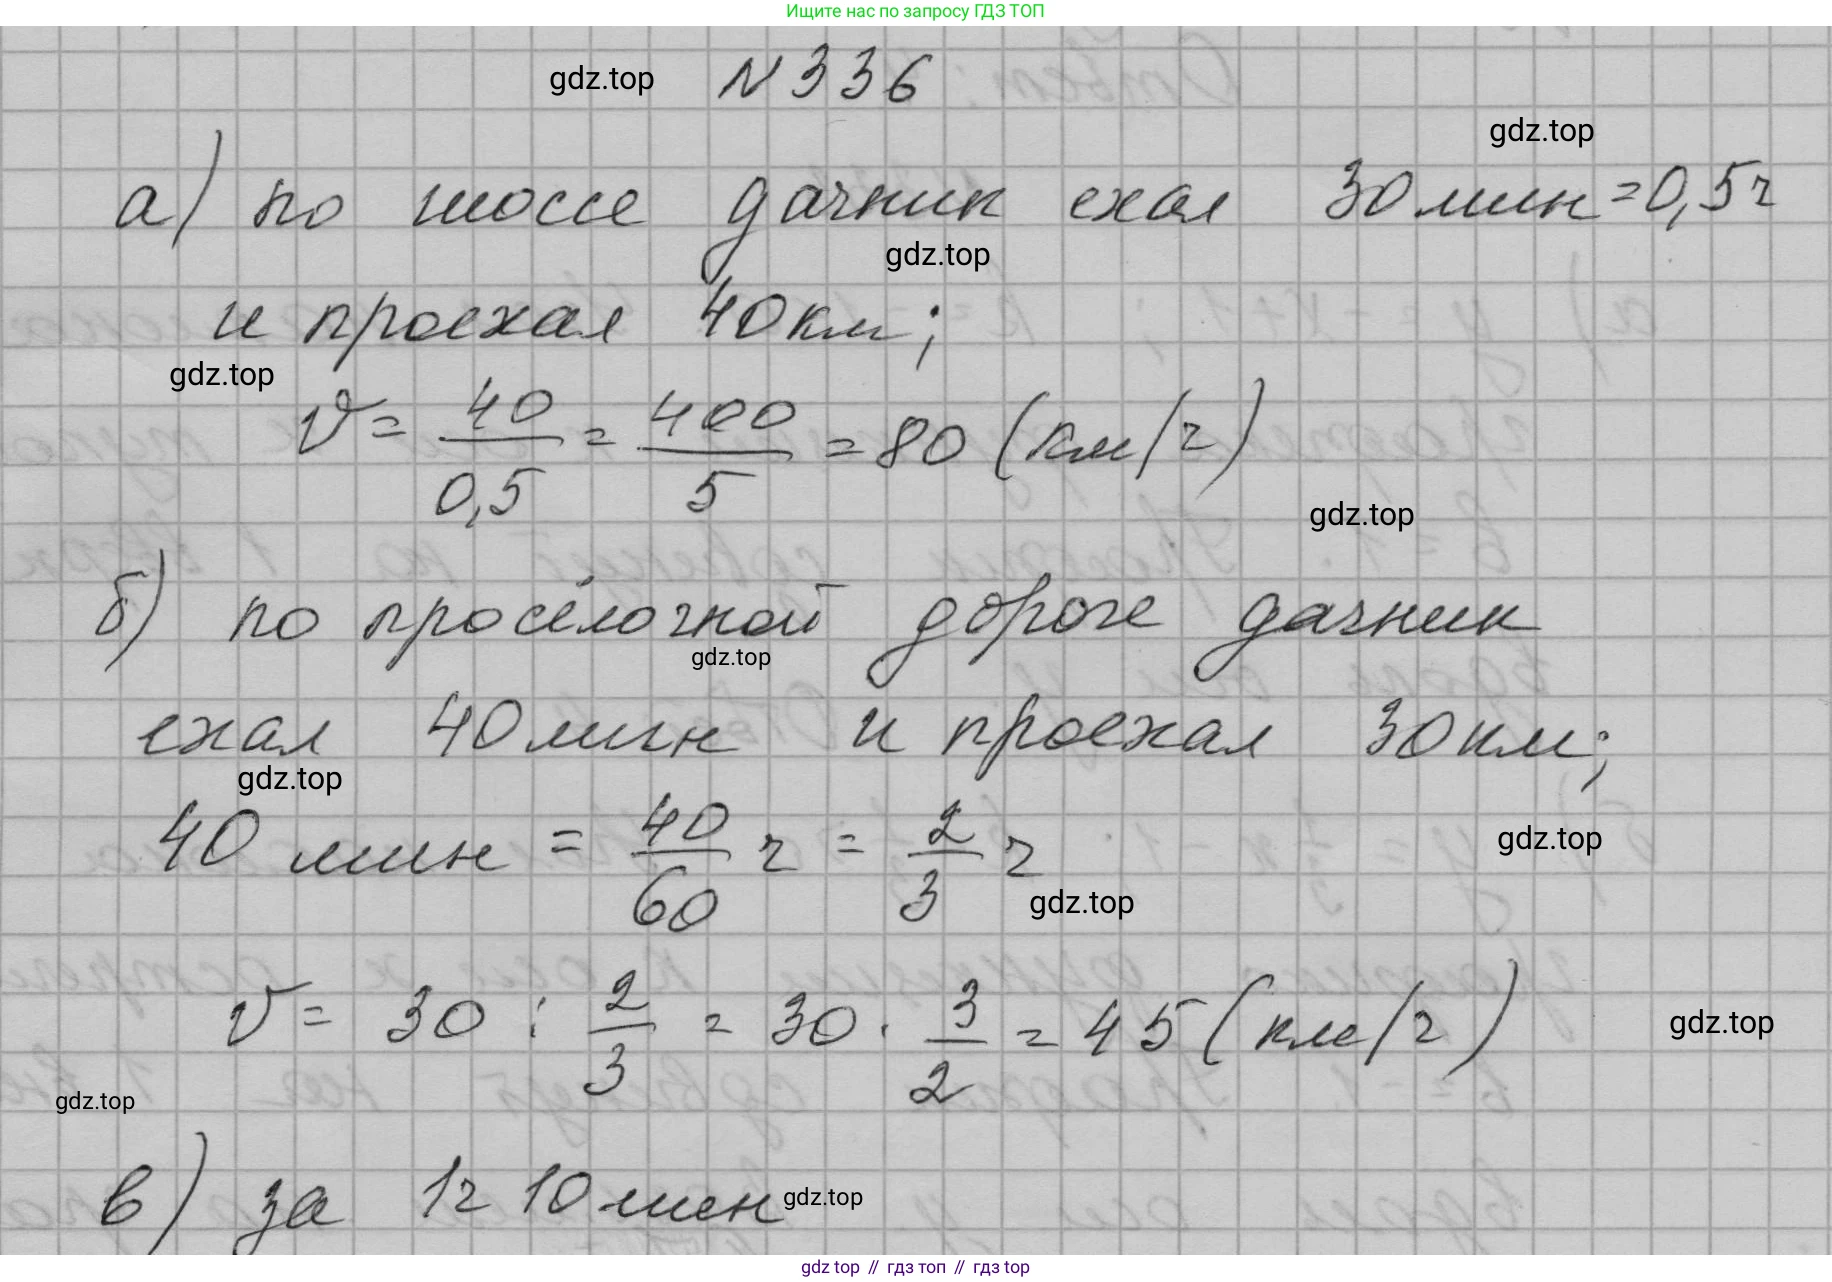 Ищите нас по запросу ГДЗ ТОП
gdz.top N 336
gdz.top
а) по шоссе дачник ехал 30 мин = 0,5 ч
gdz.top
и проехал 40 км;
gdz.top
v = 40/0,5 = 400/5 = 80 (км/ч)
gdz.top
б) по просёлочной дороге дачник
gdz.top
ехал 40 мин и проехал 30 км;
gdz.top
40 мин = 40/60 ч = 2/3 ч
gdz.top
gdz.top
v = 30 : 2/3 = 30 · 3/2 = 45 (км/ч)
gdz.top
gdz.top
в) за 1 ч 10 мин gdz.top
gdz top // гдз топ // гдз top